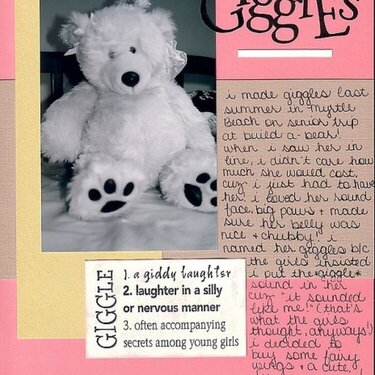 GIGGLES
i made giggles last
summer in myrtle
Beach on senior trip
at build a bear!
when i saw her in
line, i didn't care how
much she would cost,
cuz i just had to have
her! i loved her round
face, big paws & made
sure her belly was
nice & chubby! i
named her giggles b/c
the girls insisted
i put the *giggle*
sound in her
cuz "it sounded
like me!" (that's
what the girls
thought, anyways!)
i decided to
buy some fairy
wings & a cute,
GIGGLE
1. a giddy laughter
2. laughter in a silly
or nervous manner
3. often accompanying
secrets among young girls